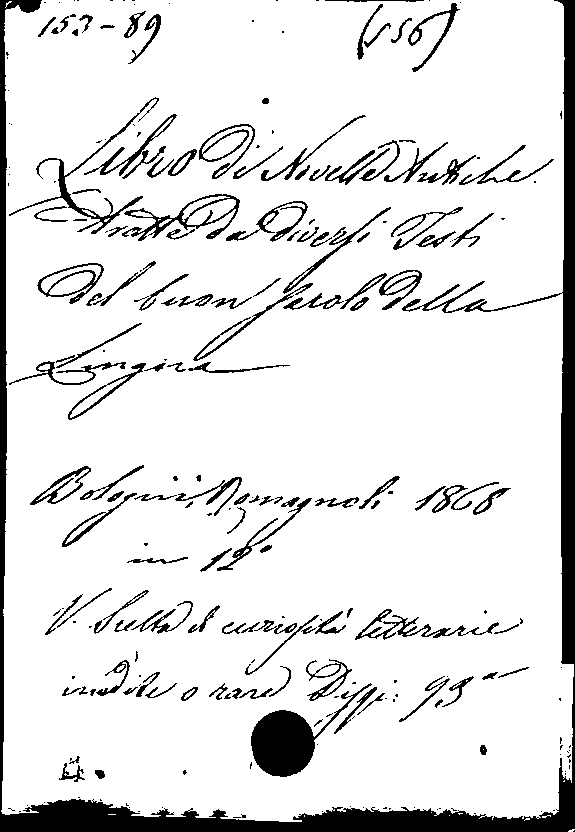 153-89 (556)
Libro di Novelle Antiche
tratte da diversi Testi
del buon secolo della
Lingua
Bologna, Romagnoli 1868
in 12°
V. Scelta di curiosità letterarie
inedite o rare Disp: 93ª